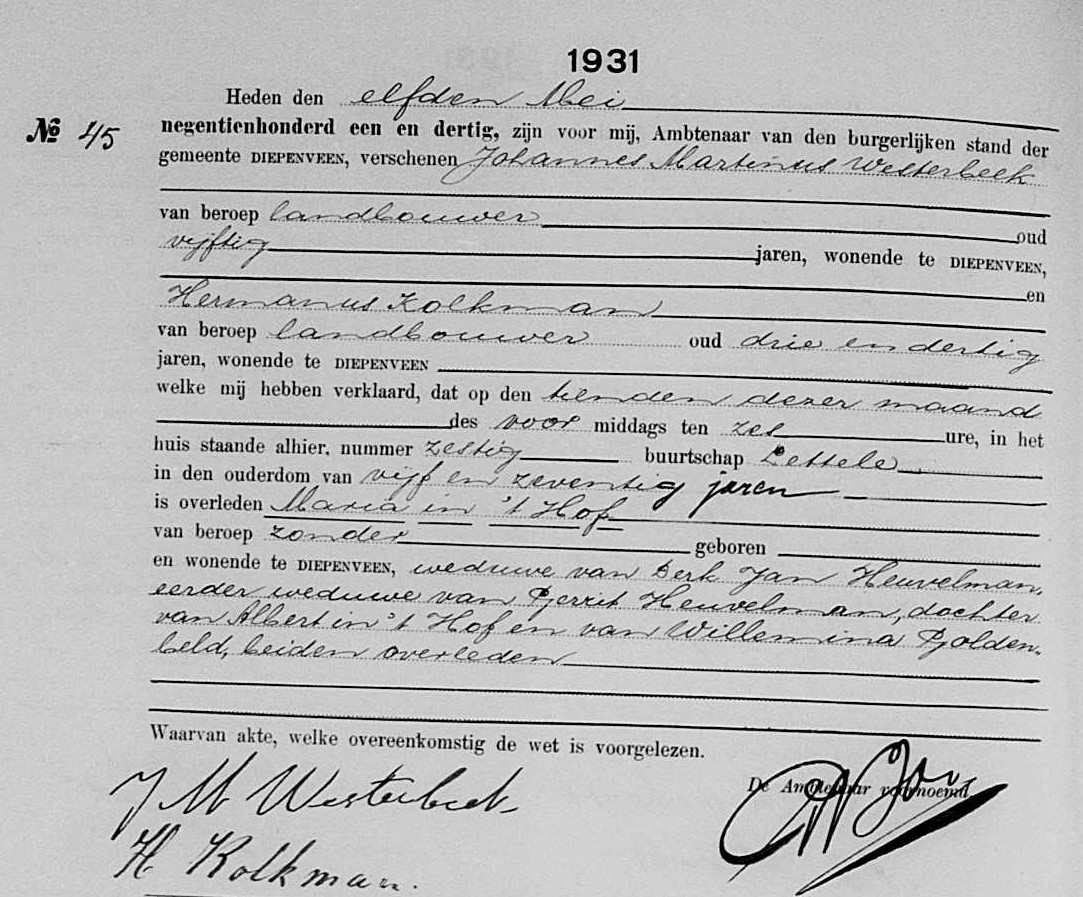 1931
Heden den elfden Mei
Nº 45
negentienhonderd een en dertig, zijn voor mij, Ambtenaar van den burgerlijken stand der
gemeente DIEPENVEEN, verschenen Johannes Martinus Westerbeek
van beroep landbouwer oud
vijftig jaren, wonende te DIEPENVEEN,
en
Hermanus Kolkman
van beroep landbouwer oud drie en dertig
jaren, wonende te DIEPENVEEN
welke mij hebben verklaard, dat op den tienden dezer maand
des voor middags ten zes ure, in het
huis staande alhier, nummer zestig buurtschap Lettele
in den ouderdom van vijf en zeventig jaren
is overleden Maria in 't Hof
van beroep zonder geboren
en wonende te DIEPENVEEN, weduwe van Derk Jan Heuvelman,
eerder weduwe van Gerrit Heuvelman, dochter
van Albert in 't Hof en van Willemina Golden-
beld, beiden overleden
Waarvan akte, welke overeenkomstig de wet is voorgelezen.
De Ambtenaar voornoemd
J M Westerbeek
H Kolkman.